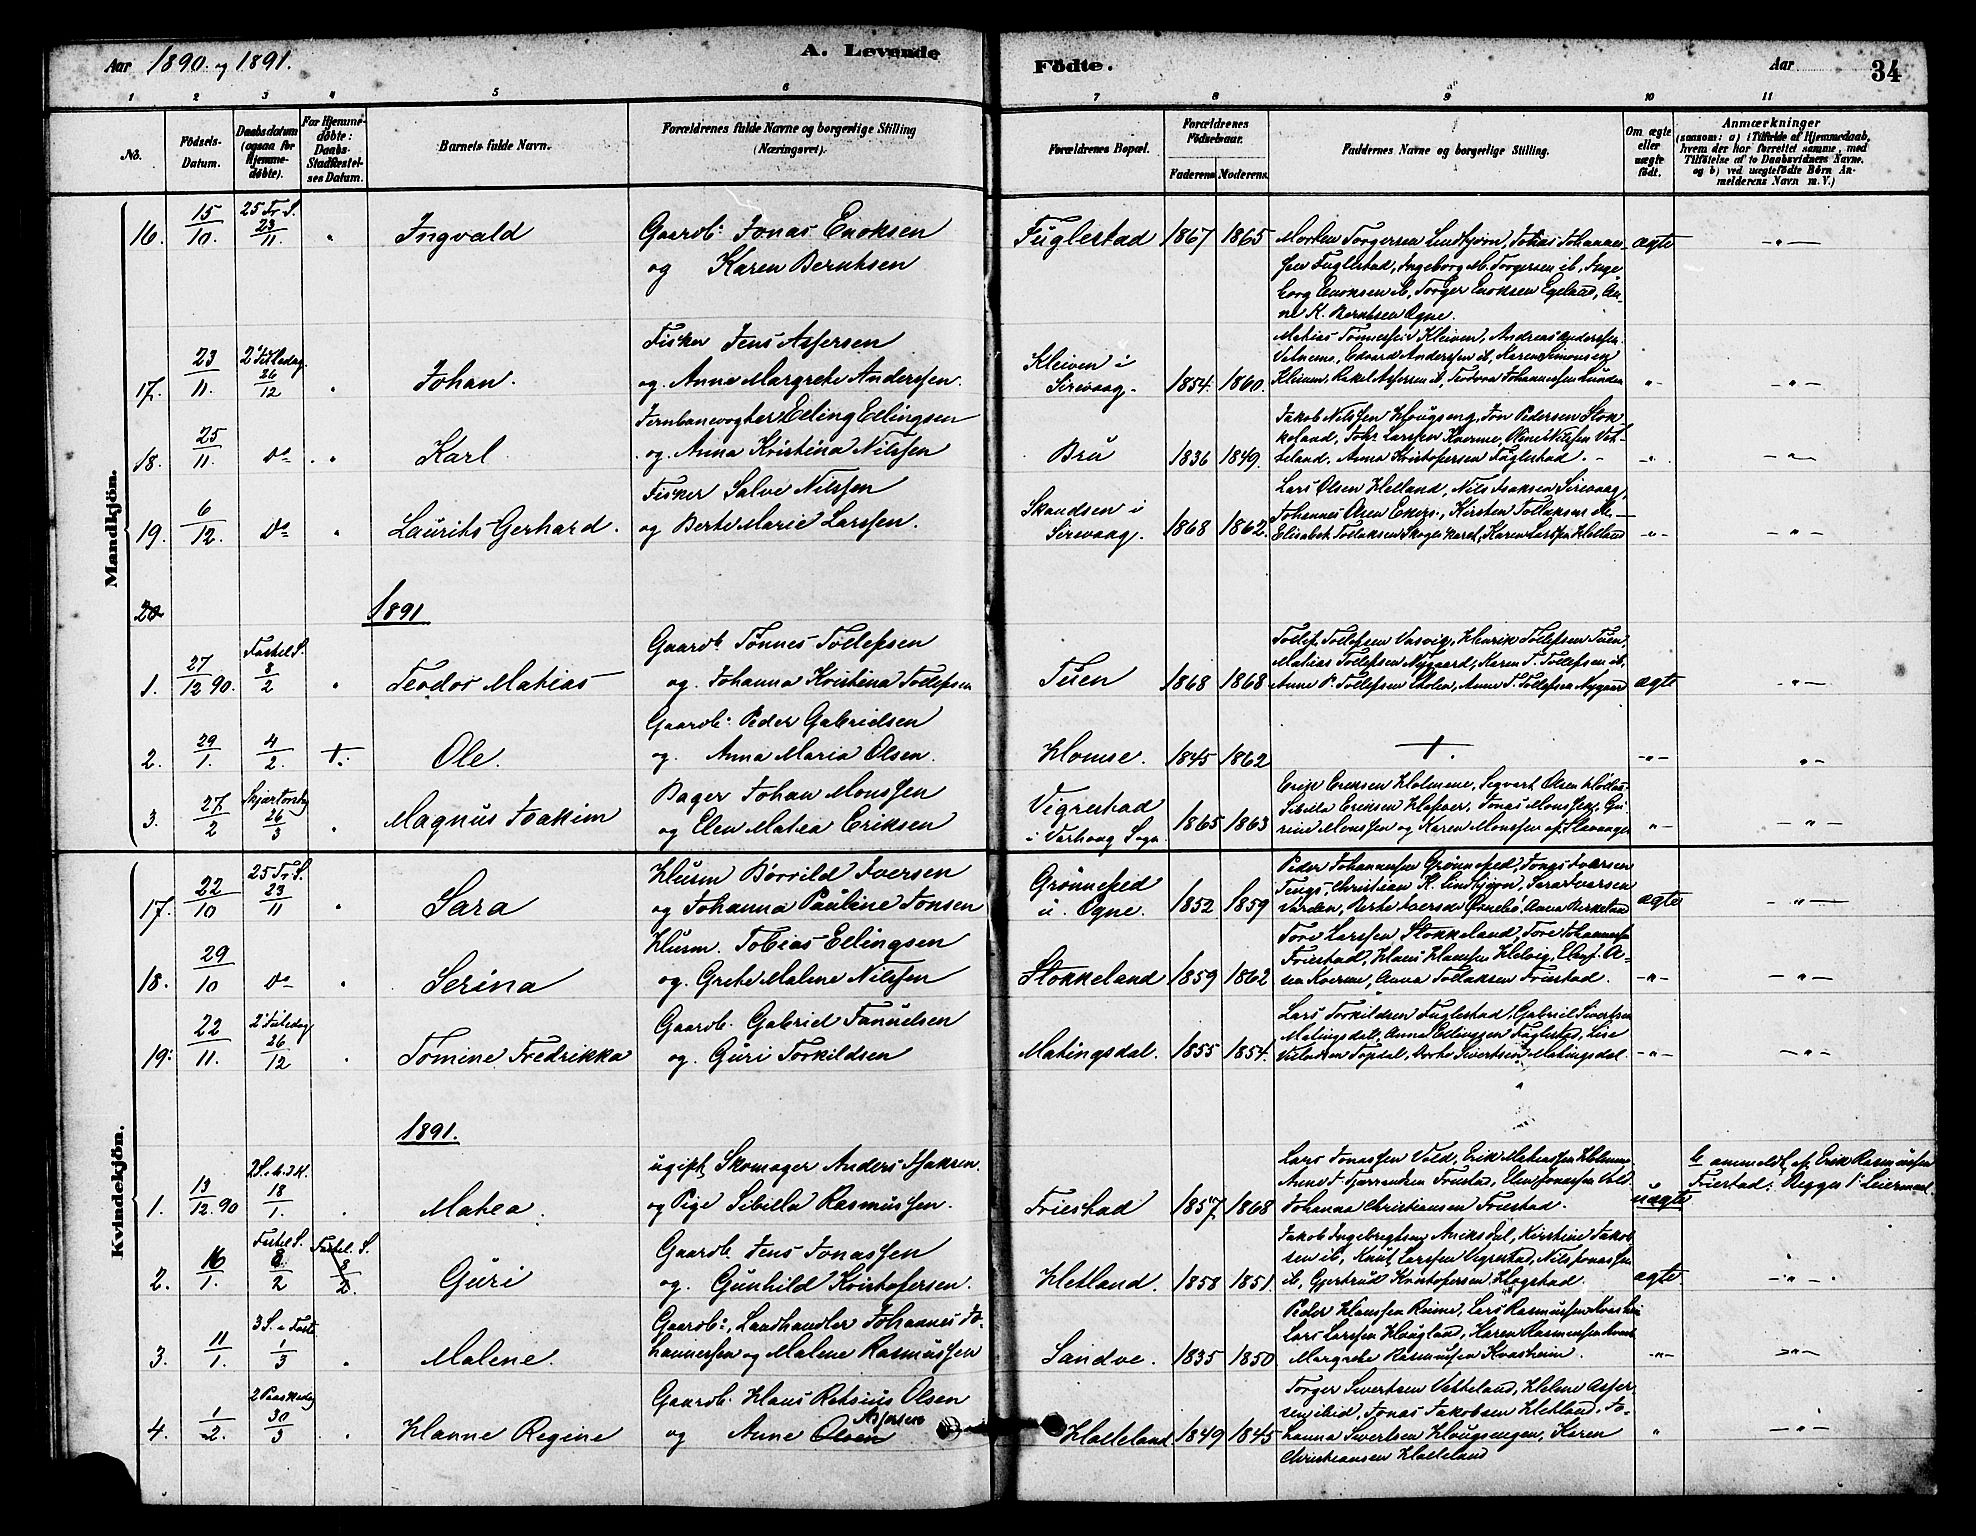 Aar 1890 og 1891.
A. Levende
Födte.
Aar
34
1 2 3 4 5 6 7 8 9 10 11
No.
Födsels-Datum.
Daabsdatum (ogsaa for Hjemme-döbte).
For Hjemme-döbte: Daabs-Stadfæstel-ses Datum.
Barnets fulde Navn.
Forældrenes fulde Navne og borgerlige Stilling (Næringsvei).
Forældrenes Bopæl.
Forældrenes Födselsaar.
Faderens Moderens.
Faddernes Navne og borgerlige Stilling.
Om ægte eller uægte födt.
Anmærkninger
(saasom: a) i Tilfælde af Hjemmedaab,
hvem der har forrettet samme, med
Tilföielse af to Daabsvidners Navne.
og b) ved uægtefödte Börn An-
melderens Navn m. V.)
Mandkjön.
16. 15/10. 25 Tr. S. 23/11. " Ingvald Gaardb. Jonas Enoksen
og Karen Berntsen
Fuglestad 1867 1865 Morten Torgersen Lindtjørn, Jonas Johannes-
sen Fuglestad, Ingeborg M. Torgersen ib, Inge
borg Enoksen ib, Torger Enoksen Egeland, An-
ne K. Berntsen Ogne.
ægte - " -
17. 23/11. 2 Juledag 26/12 " Johan. Fisker Jens Assersen
og Anna Margrete Anderssen.
Kleiven i
Sirevaag. 1854. 1860. Matias Tønnessen Kleiven, Andreas Anderssen
Edvard Anderssen ib, Karen Simonsen
Kleiven, Rakel Assersen ib, Teodora Johannessen Lunden
" - " -
18. 25/11. do " Karl. Jernbanevogter Edling Edlingsen
og Anna Kristina Nilssen
Bru 1836 1849. Jakob Nilssen Hougseng, Jon Pedersen Stok
keland, Johs Larssen Kverme, Oline Nilssen Vet-
teland. Anna Kristofersen Fuglestad.
" - " -
19. 6/12. do " Laurits Gerhard. Fisker Salve Nilssen
og Berte Marie Larssen.
Skandsen i
Sirevaag. 1868 1862. Lars Olsen Helland, Nils Isaksen Sirevaag,
Johannes Olsen Eikers., Kirsten Tollaksen
Elisabet Tollaksen Skogleskaret, Karen Larssen Helland
- " - - " -
20
1891
1. 27/12 90. Fastel. S. 8/2 " Teodor Matias Gaardb. Tønnes Tollefsen
og Johanna Kristina Tollefsen
Tuen 1868 1868 Tollef Tollefsen Vasvig, Henrik Tollefsen Tuen,
Matias Tollefsen Nygaard, Karen T. Tollefsen ib.
Anne P. Tollefsen Stolen, Anne T. Tollefsen Nygaard
ægte - " -
2. 29/1. 4/2. +. Ole. Gaardb. Peder Gabrielsen
og Anna Maria Olsen.
Homse. 1845 1862 +. - " - " -
3. 27/2 Skjærtorsdg 26/3 " Magnus Joakim Bager Johan Monssen
og Elen Matea Eriksen
Vigrestad
i Varhaug Sogn 1865 1863 Erik Eriksen Holmene, Segvart Olsen
Sibella Eriksen Jonas Monssen, Gu
rine Monssen og Karen Monssen af Stavanger
- " - - " -
Kvindekjön.
17. 22/10 25 Tr. S. 23/11 " Sara Husm Børrild Iversen
og Johanna Pauline Jonsen
Grønnefed
u. Ogne. 1852 1859 Peder Johannessen Grønnefed, Jonas Iversen
Tengs, Christian K. Lindtjørn, Sara Ivarsen
Varden, Berte Iversd Ørnebø. Anna Birkeland
ægte - " -
18. 29/10 do " Serina Husm. Tobias Edlingsen
og Grete Malene Nilssen
Stokkeland 1859 1862 Tore Larssen Stokkeland, Tore Johannessen
Friestad, Hans Hanssen Helvig,
Kverme, Anna Tollaksen Friestad.
- " - - " -
19. 22/11. 2 Juledag 26/12 " Tomine Fredrikka Gaardb. Gabriel Tanulsen
og Guri Torkildsen
Matingsdal. 1855 1854. Lars Torkildsen Fuglestad, Gabriel Sivertsen
Matingsdal, Anna Edlingsen Fuglestad, Lise
Topdal, Dorte Sivertsen Matingsdal.
- " - - " -
1891.
1. 13/12 90 2 S. e. H. 3 K. 18/1. " Matea. ugift Skomager Anders Isaksen
og Pige Sibella Rasmussen.
Friestad 1857 1868 Lars Jonassen Vold, Erik Matiassen Holmene
Anne T. Friestad, Elen Jonassen Vold
Johanna Christiansen Friestad.
uægte b anmeldt af Erik Rasmussen
Friestad; Begges 1. Leiermaal
2. 16/1. Fastel. S. 8/2 Fastel. S. 8/2. Guri Gaardb. Jens Jonassen
og Gunhild Kristofersen.
Hetland. 1858 1851. Jakob Ingebregtsen Aniksdal, Kirstine Jakob
sen ib, Knut Larssen Vigrestad, Nils Jonassen
ib, Gjertrud Kristofersen Hogstad.
ægte - " -
3. 11/1. 3 S. i Faste 1/3 " Malene. Gaardb., Landhandler Johannes Jo-
hannessen og Malene Rasmussen
Sandve. 1835 1850 Peder Hanssen Reime, Lars Rasmussen Kvasheim
Lars Larssen Hougland, Karen Rasmussen
Margrete Rasmussen Kvasheim.
- " - - " -
4. 1/2. 2 Paaskedag 30/3 " Hanne Regine Gaardb. Klaus Retsius Olsen
og Anne Olsen Asjersen
Hælleland 1849 1845 Torger Sivertsen Vetteland, Helene Asser-
sen ibid, Jonas Jakobsen Hetland, Jo-
hanna Sivertsen Hougsengen, Karen
Christiansen Hælleland
" - " -